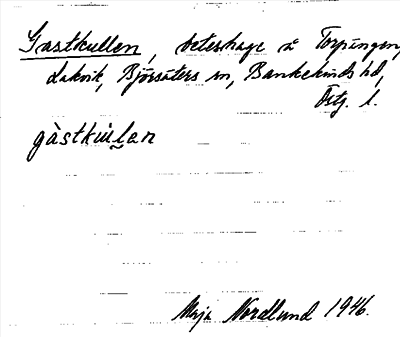 Gastkullen, beteshage å Torpängen,
Lakvik, Björsäters sn, Bankekinds hd,
Östg. l.
gàstkúlan
Maja Nordlund 1946.